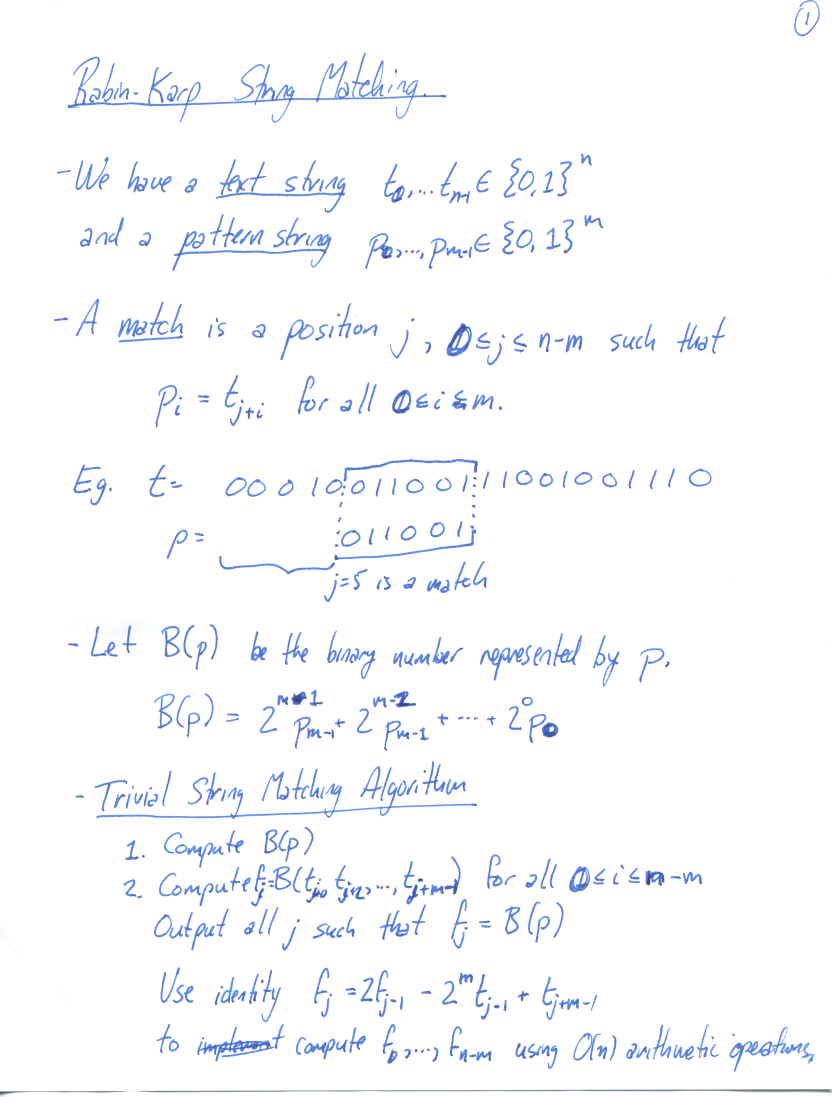 1
Rabin-Karp String Matching.
- We have a text string t₀,...tₙ₋₁ ∈ {0,1}ⁿ
and a pattern string p₀,...,pₘ₋₁ ∈ {0,1}ᵐ
- A match is a position j, 0≤j≤n-m such that
pᵢ = t_{j+i} for all 0≤i≤m.
Eg. t= 0 0 0 1 0 0 1 1 0 0 1 1 1 0 0 1 0 0 1 1 1 0
p= 0 1 1 0 0 1
j=5 is a match
- Let B(p) be the binary number represented by p.
B(p) = 2^{m-1} p_{m-1} + 2^{m-2} p_{m-1} + ... + 2^0 p_0
- Trivial String Matching Algorithm
1. Compute B(p)
2. Compute f_j=B(t_{j+0}, t_{j+2}, ..., t_{j+m-1}) for all 0≤i≤n-m
Output all j such that f_j = B(p)
Use identity f_j = 2f_{j-1} - 2^m t_{j-1} + t_{j+m-1}
to implement compute f_0,..., f_{n-m} using O(n) arithmetic operations,